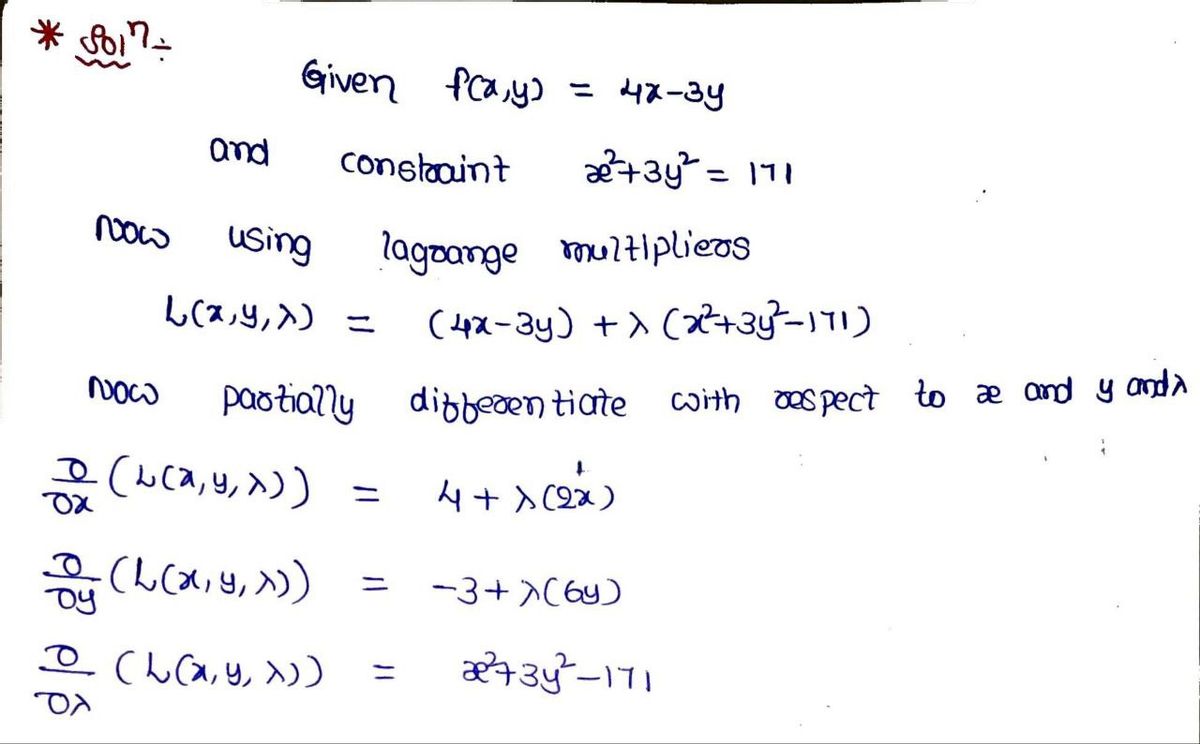 * Solⁿ÷
Given f(x,y) = 4x-3y
and constraint x²+3y² = 171
Now using lagrange multipliers
L(x,y,λ) = (4x-3y) + λ (x²+3y²-171)
Now partially differentiate with respect to x and y and λ
∂/∂x (L(x,y,λ)) = 4 + λ(2x)
∂/∂y (L(x,y,λ)) = -3 + λ(6y)
∂/∂λ (L(x,y,λ)) = x²+3y²-171